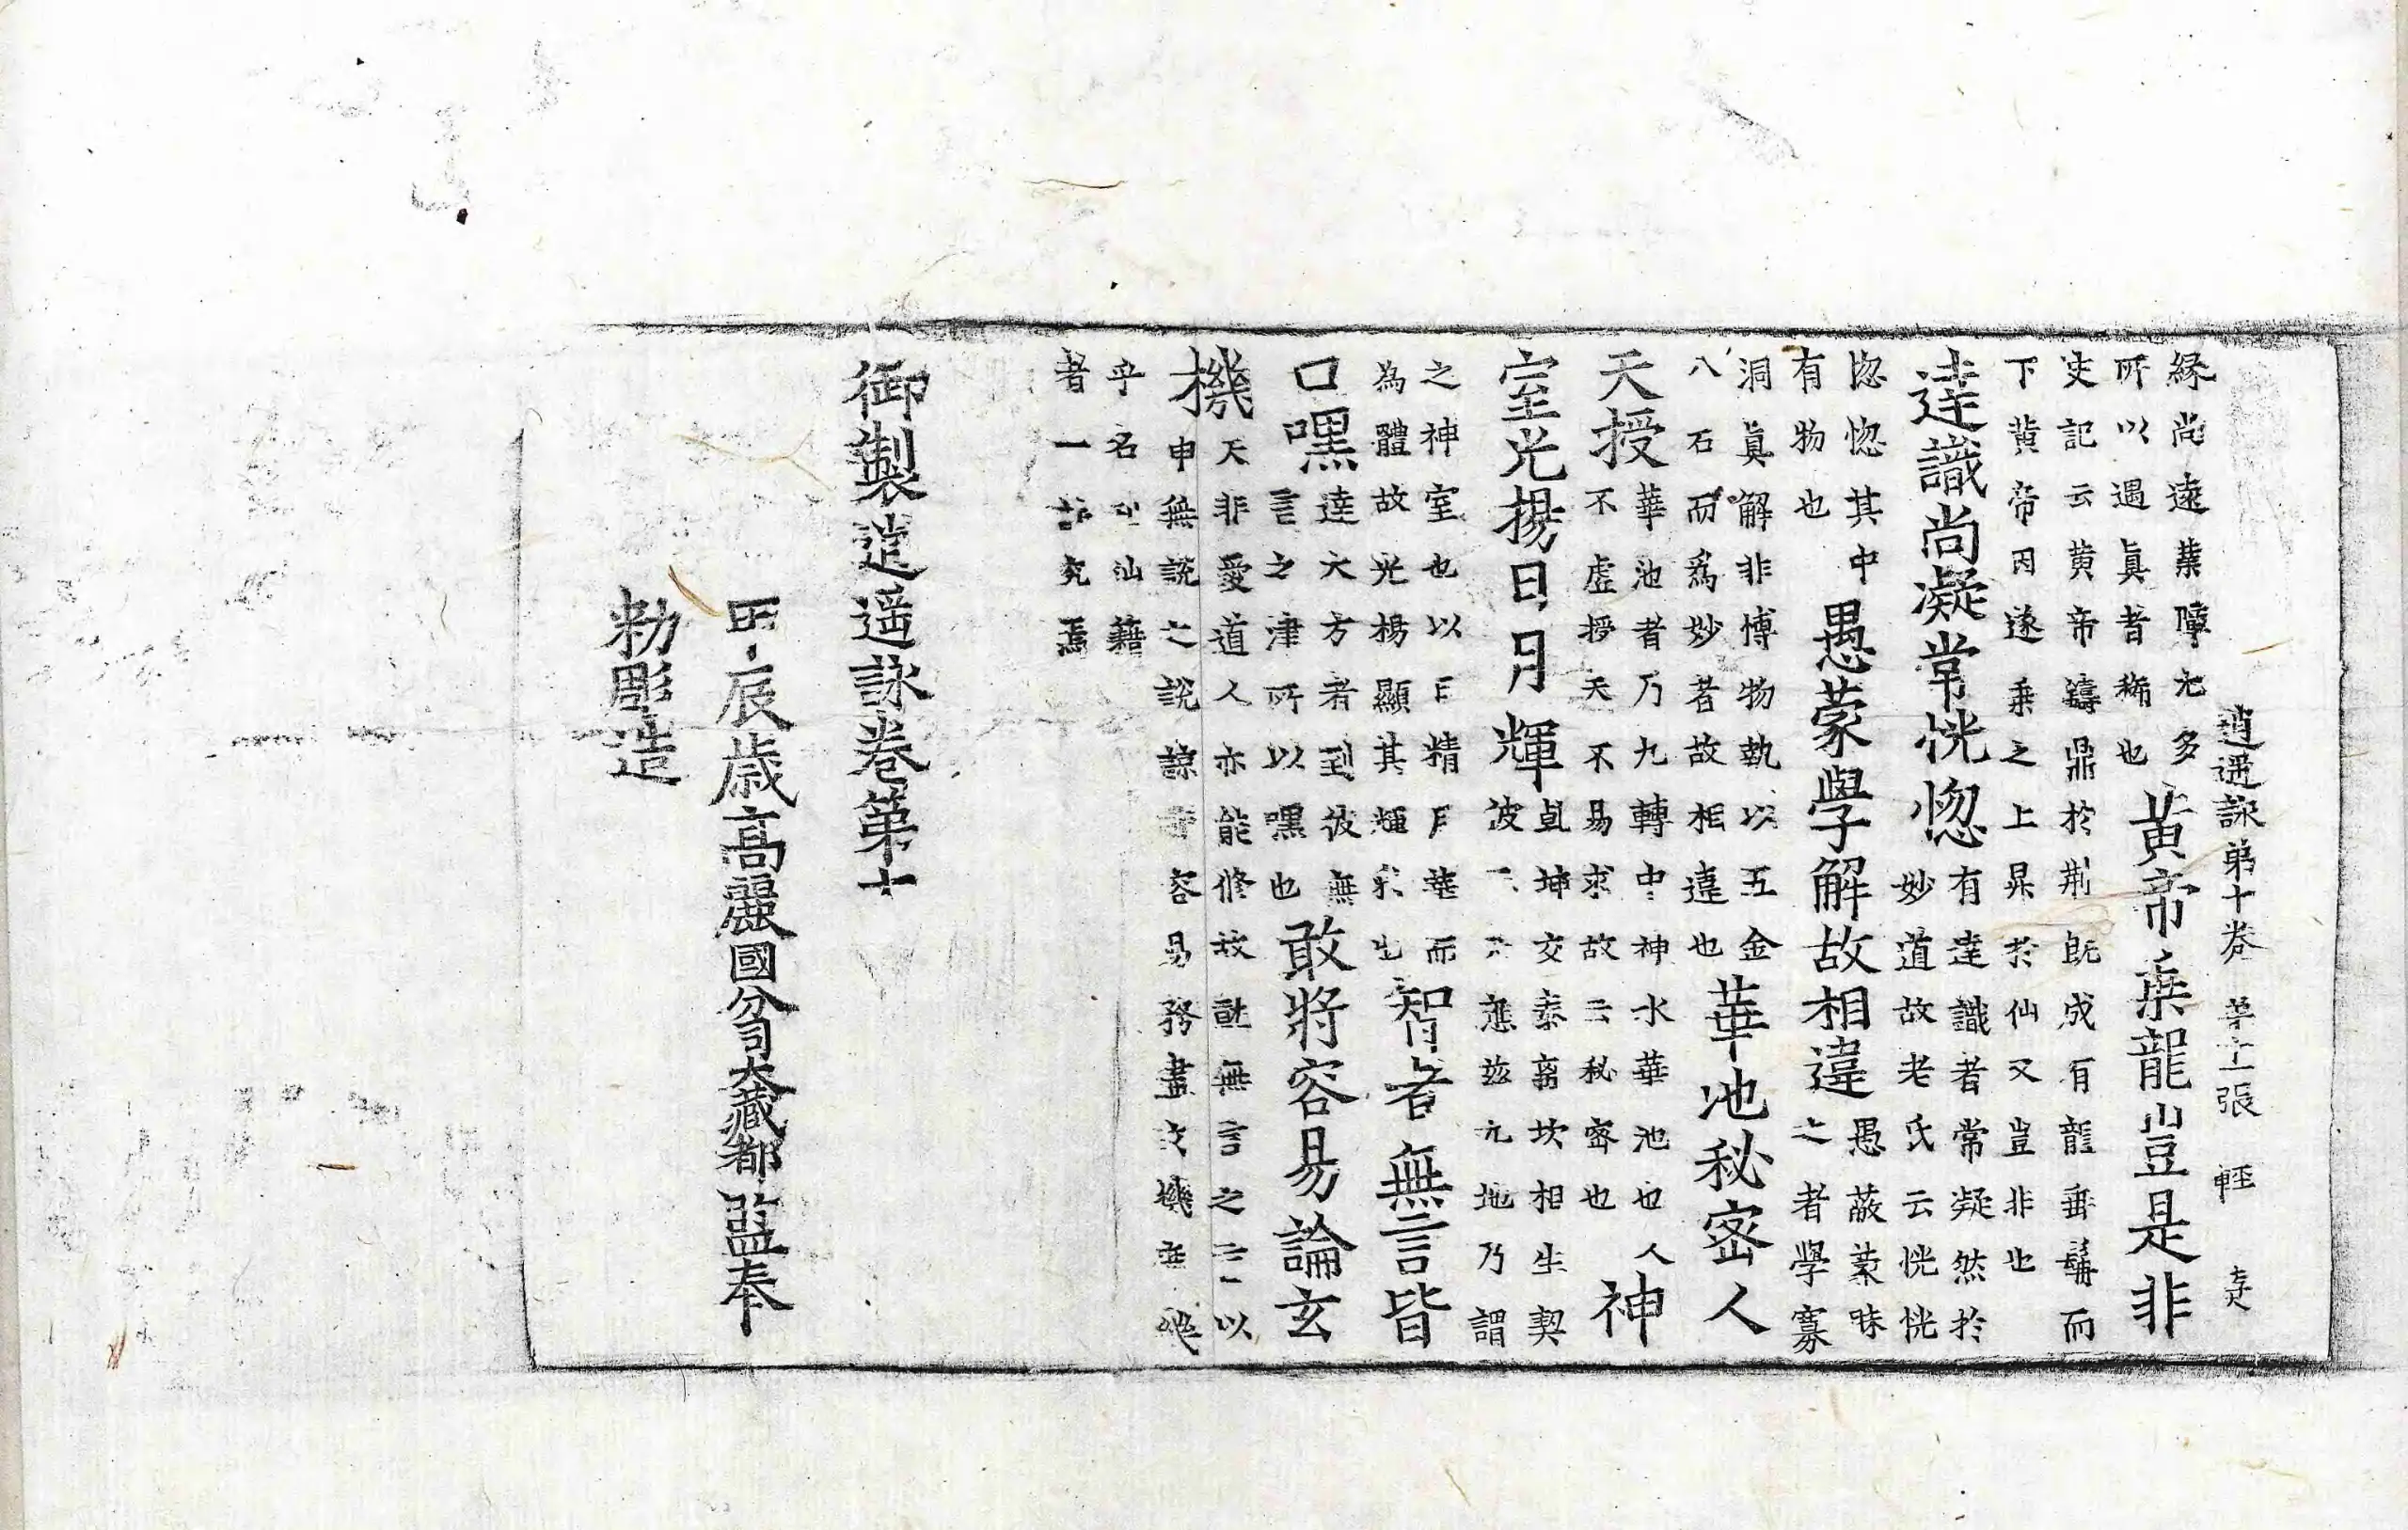 逍遥詠第十卷 第十二張 輕
縁尚遠業障尤多
所以遇真者稀也
黄帝乗龍豈是非
史記云黄帝鑄鼎於荆旣成有龍垂鬍而
下黄帝因遂乗之上昇於仙又豈非也
達識尚凝常恍惚
有達識者常凝然於
妙道故老氏云恍恍
惚惚其中
有物也
愚蒙學解故相違
愚蔽蒙昧
之者學寡
洞真解非博物執以五金
八石而爲妙者故相違也
華池秘密人
天授
華池者乃九轉中神水華池也人
不虚授天不易求故云秘密也
神
室光揚日月輝
乾坤交泰离坎相生契
彼 應兹元地乃謂
之神室也以日精月華而
為體故光楊顯其輝 也
智者無言皆
口嘿
達大方者到彼無
言之津所以嘿也
敢將容易論玄
機
天非愛道人亦能修故説無言之言以
申無説之說諒 容易務盡玄機
乎名 仙籍
者一 究焉
御製逍遥詠卷第十
甲辰歳高麗國分司大藏都監奉
勑彫造